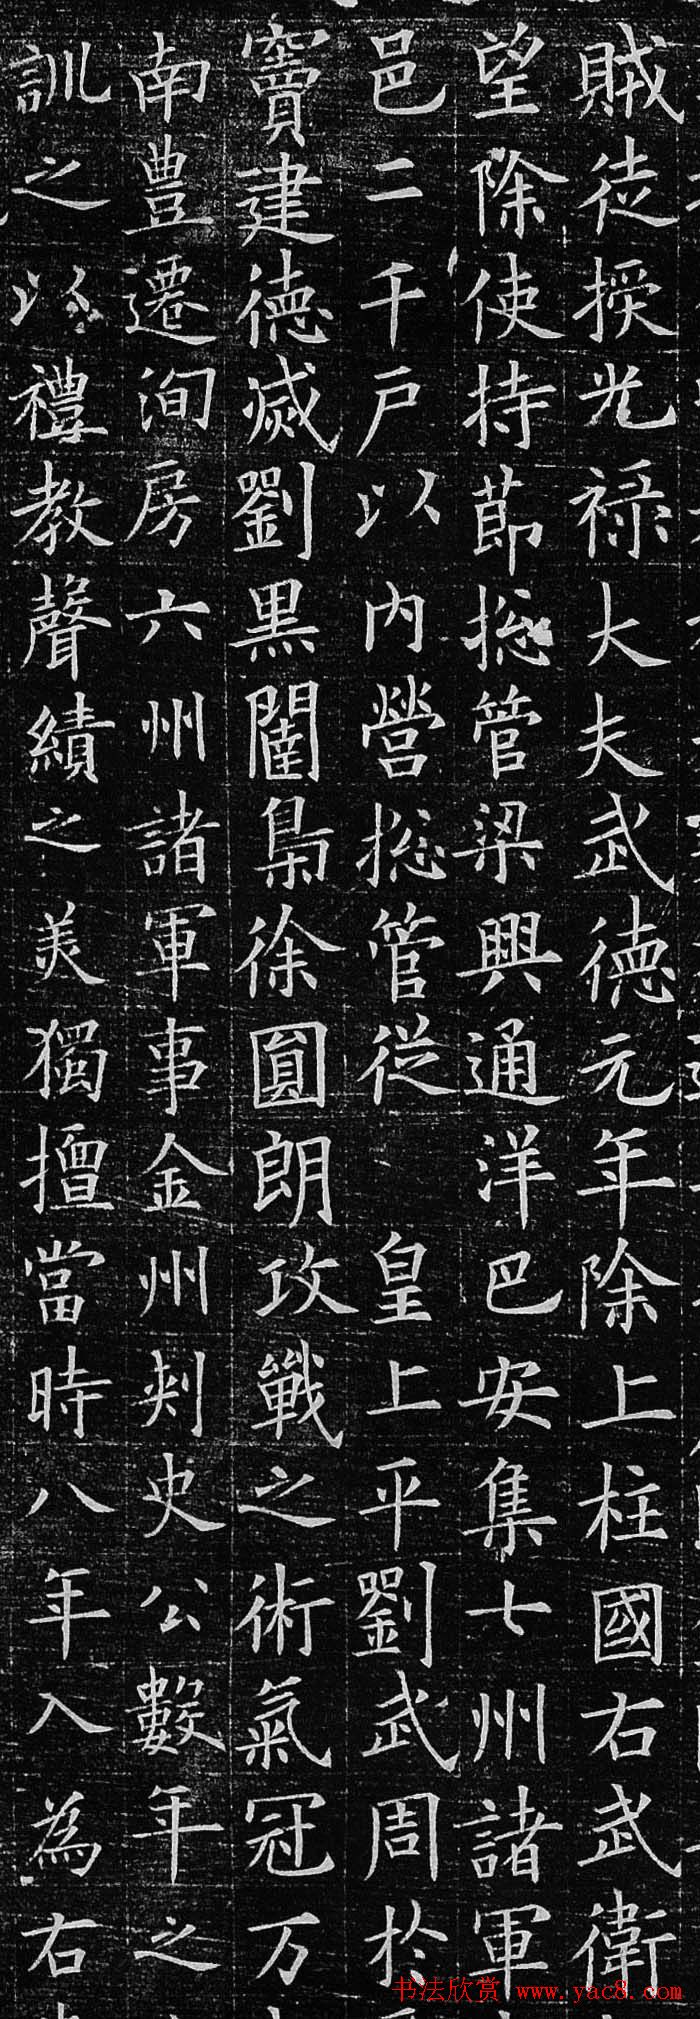 賊徒授光祿大夫武德元年除上柱國右武衛
望除使持節揔管梁興通洋巴安集七州諸軍
邑二千戶以內營揔管從 皇上平劉武周於
竇建德滅劉黑闥梟徐圓朗攻戰之術氣冠万
南豊遷洵房六州諸軍事金州刾史公數年之
訓之以禮教聲績之美獨擅當時八年入為右
书法欣赏 www.yac8.com